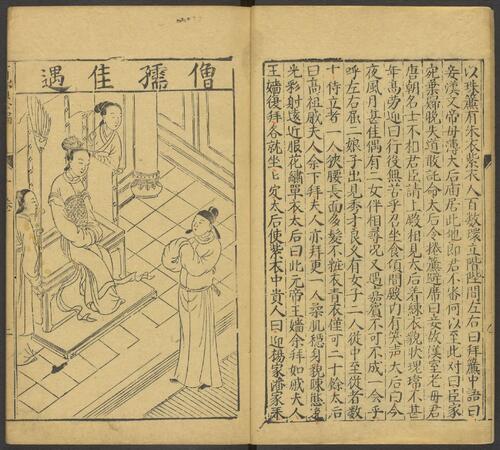 以珠簾有朱衣紫衣人百數環立階陛間左右曰拜簾中語曰
妾漢文帝母薄太后廟居此地郎君不當何以至此對曰臣家
宛葉歸晚失道敢託命太后令捲簾避席曰妾故漢室老母君
唐朝名士不扣君臣請上殿相見太后着練衣貌狀瑰瑋不甚
年高勞迎曰行役無苦乎召坐食頃間殿內有笑聲太后曰今
夜風月甚佳偶有二女伴相尋况又遇嘉賓不可不成一会乎
呼左右屈二娘子出見秀才良久有女子二人從中至從者數
十侍立者一人狹腰長面多髮不粧衣青衣僅可二十餘太后
曰高祖戚夫人余下拜夫人亦拜更一人柔肌穩身貌態逸
光彩射遠近服花繡單衣太后曰此元帝王嬙余拜如戚夫人
王嬙復拜各就坐〻定太后使紫衣中貴人曰迎楊家潘家來
僧孺佳遇